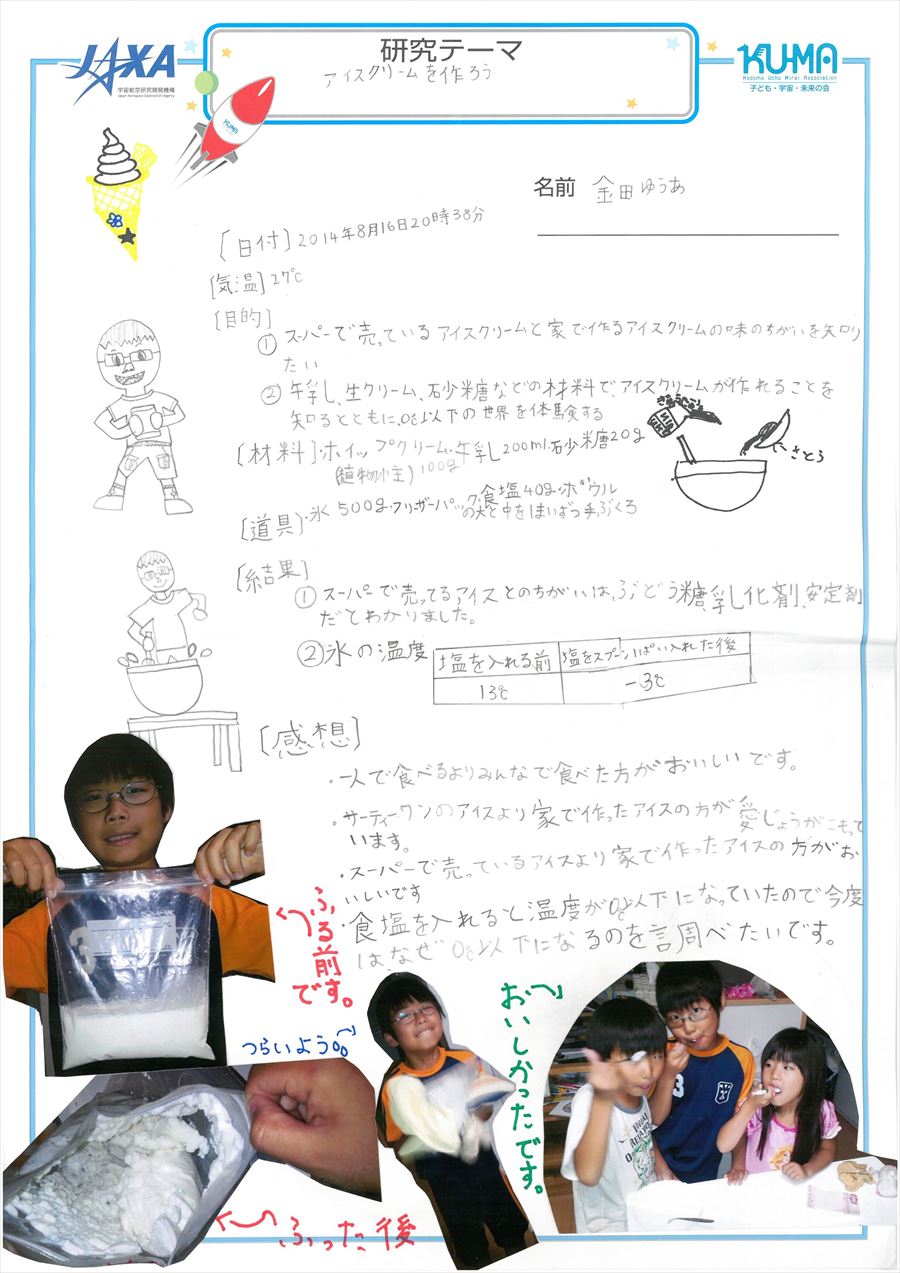 JAXA
宇宙航空研究開発機構
Japan Aerospace Exploration Agency
研究テーマ
アイスクリームを作ろう
KUMA
KUMA
Kodomo Uchu Mirai Association
子ども・宇宙・未来の会
名前 金田ゆうあ
[日付]2014年8月16日20時38分
[気温]27℃
[目的]
① スーパーで売っているアイスクリームと家で作るアイスクリームの味のちがいを知り
たい
② 牛乳、生クリーム、砂糖などの材料で、アイスクリームが作れることを
知るとともに、0℃以下の世界を体験する
ぎゅうにゅう
さとう
[材料]・ホイップクリーム・牛乳200ml・砂糖20g
(植物性)100g
[道具]・氷500g・フリーザーパックの大と中をはいぼう手ぶくろ
・食塩40g・ボウル
[結果]
① スーパーで売ってるアイスとのちがいは、ぶどう糖、乳化剤、安定剤
だとわかりました。
②氷の温度
塩を入れる前 塩をスプーン1ぱい入れた後
13℃ -3℃
[感想]
・一人で食べるよりみんなで食べた方がおいしいです。
・サーティーワンのアイスより家で作ったアイスの方が愛じょうがこもって
います。
・スーパーで売っているアイスより家で作ったアイスの方がお
いしいです
・食塩を入れると温度が0℃以下になっていたので今度
は、なぜ0℃以下になるのを調べたいです。
ふる前です。
つらいよう
おいしかったです。
3
ふった後